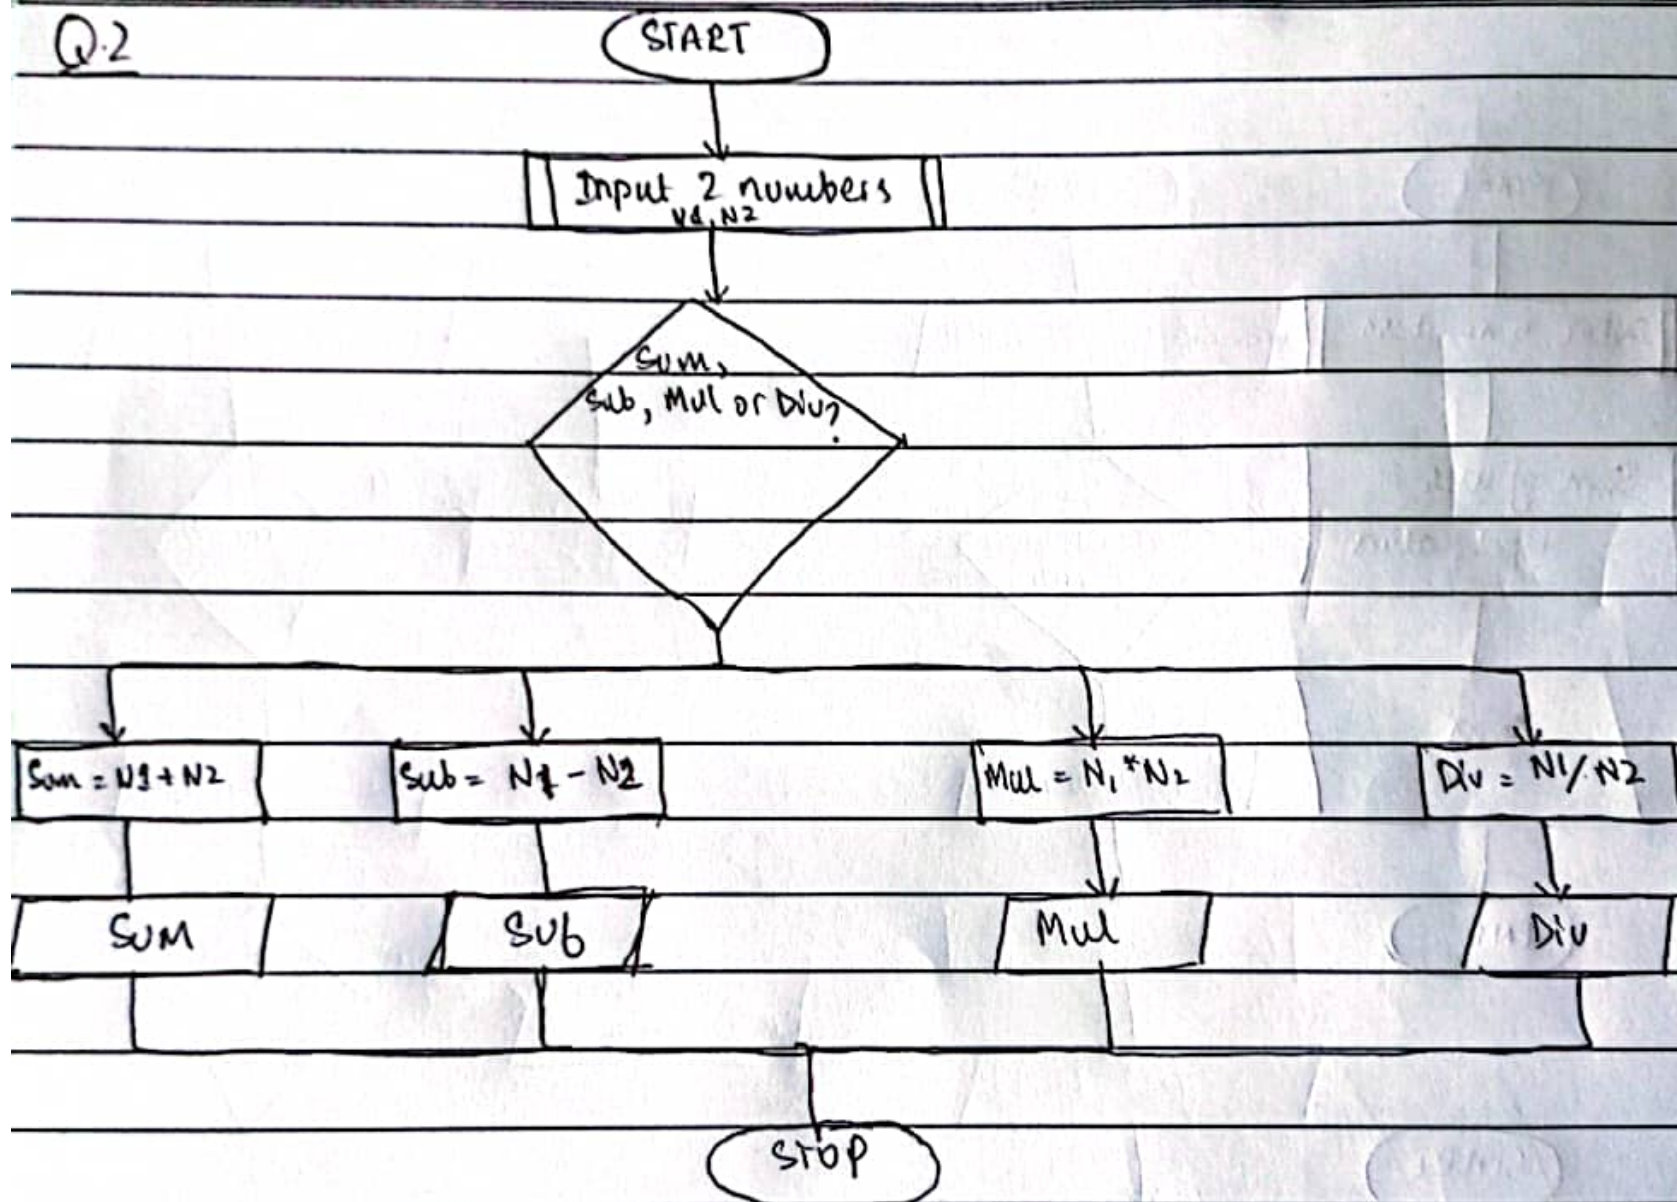 Q.2
START
Input 2 numbers
N1, N2
Sum,
Sub, Mul or Div?
Sum = N1 + N2
Sub = N1 - N2
Mul = N1 * N2
Div = N1/N2
SUM
Sub
Mul
Div
STOP